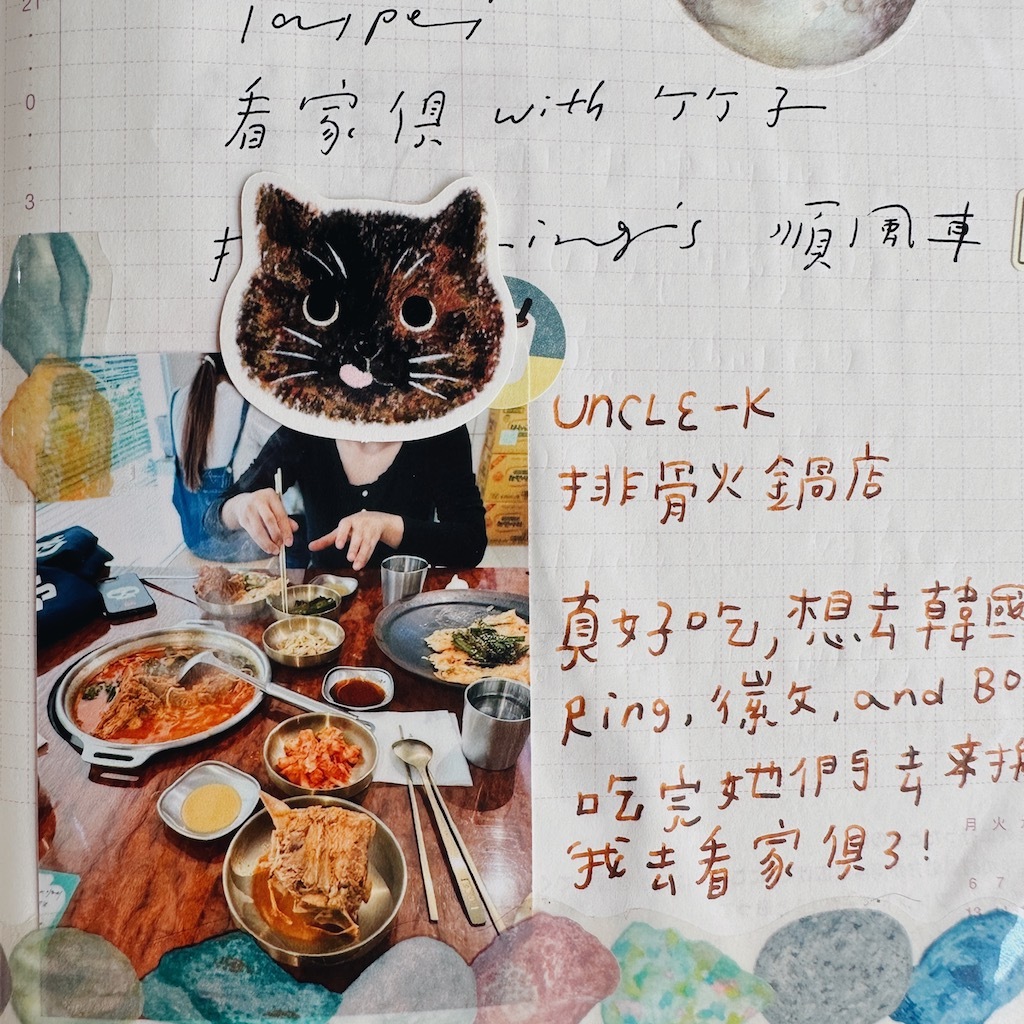 21
Taipei
0
看家俱 with 竹子
3
ing's 順風車
UNCLE-K
排骨火鍋店
真好吃, 想去韓國
Ring, 徽文, and Bo
吃完她們去
我去看家俱了!
月 火
6 7
13